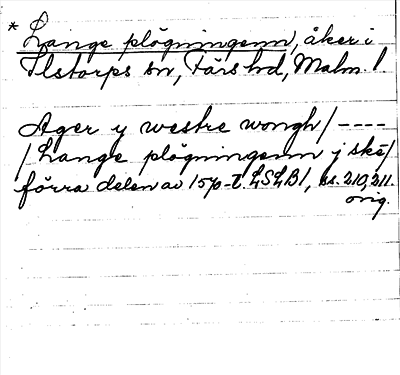 * Lange plögningenn, åker i
Ilstorps sn, Färs hd, Malm. l.
Ager y westre wongh / ----
/ Lange plögningenn j ske /
förra delen av 15/0-t. LSLB 1, ss. 210, 211.
orig.